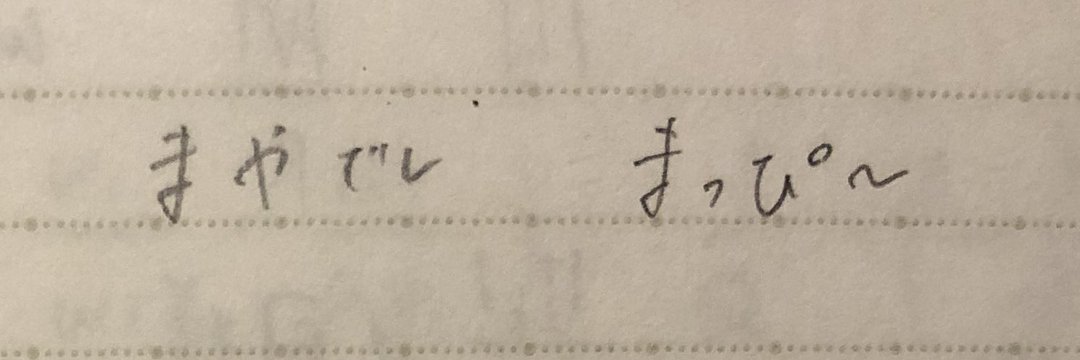 まやでし　まっぴ〜